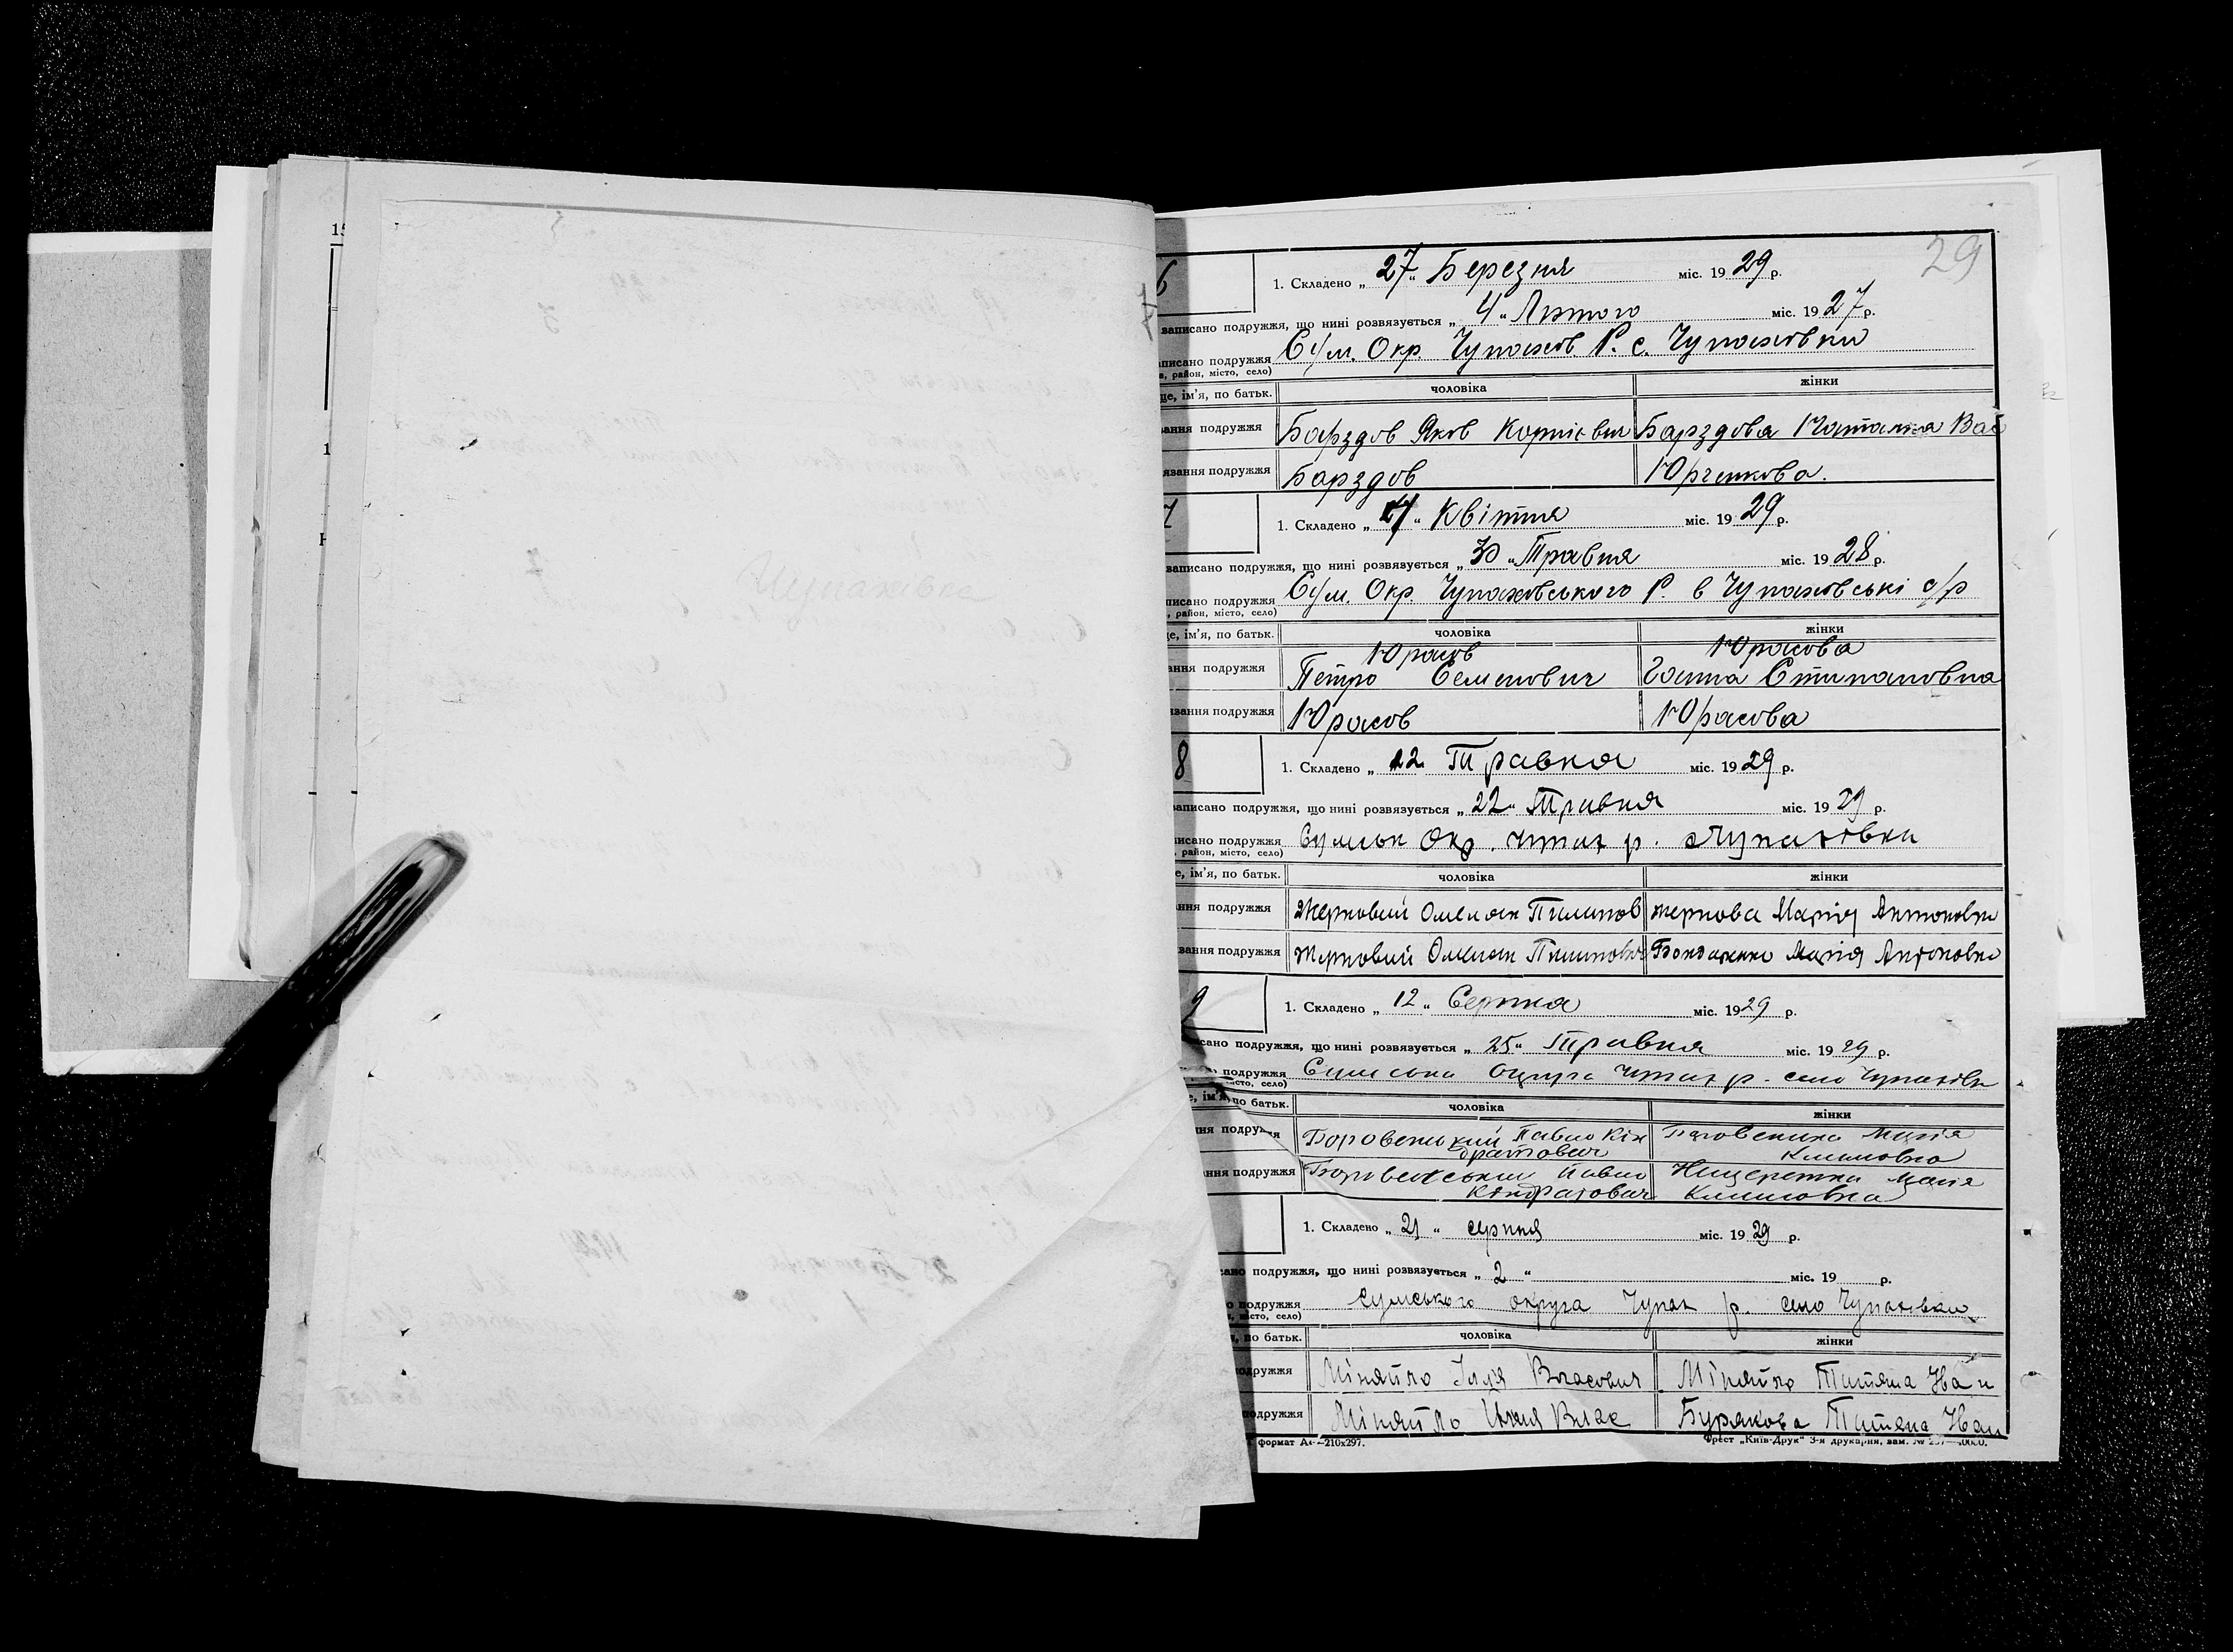 29
6
1. Складено „27“ Березня міс. 1929 р.
записано подружжя, що нині розвязується „4“ Лютого міс. 1927 р.
писано подружжя Сум. Окр. Чупахов Р. с. Чупаховки
, район, місто, село)
це, ім'я, по батьк. чоловіка жінки
ання подружжя Барздов Яков Корнієвич Барздова Наталка Вас
язання подружжя Барздов Юрченкова.
7
1. Складено „17“ Квітня міс. 1929 р.
записано подружжя, що нині розвязується „30“ Травня міс. 1928 р.
писано подружжя Сум. Окр. Чупаховського Р. в Чупаховські с/р
, район, місто, село)
це, ім'я, по батьк. чоловіка жінки
Юрасов Юрасова
ання подружжя Петро Семенович Ганна Стипановна
язання подружжя Юрасов Юрасова
8
1. Складено „22 Травня міс. 1929 р.
записано подружжя, що нині розвязується „22“ Травня міс. 1929 р.
писано подружжя Окр. р. Чупахівки
, район, місто, село)
е, ім'я, по батьк. чоловіка жінки
ання подружжя Жерновий Омелян Пилипов Жернова Марія Антоновна
вання подружжя Жерновий Омелян Пилипович Бондаренко Марія Антоновна
9
1. Складено „12“ Серпня міс. 1929 р.
сано подружжя, що нині розвязується „25“ Травня міс. 1929 р.
подружжя Сумська округа р. село Чупахівк
місто, село)
е, ім'я, по батьк. чоловіка жінки
ння подружжя Боровенський Павло Кін Марія
дратович Климовна
ання подружжя Павло Марія
Кіндратович Климовна
1. Складено „21“ серпня міс. 1929 р.
сано подружжя, що нині розвязується „2“ міс. 19 р.
о подружжя Сумського округа Чупах р. село Чупахівка
, місто, село)
, по батьк. чоловіка жінки
подружжя Міняйло Ілля Власович Міняйло Титяна Іван
подружжя Міняйло Илля Влас Бурякова Титяна Иван
формат А4—210х297. Трест „Київ-Друк“ 3-я друкарня, зам. №
Чупахівка